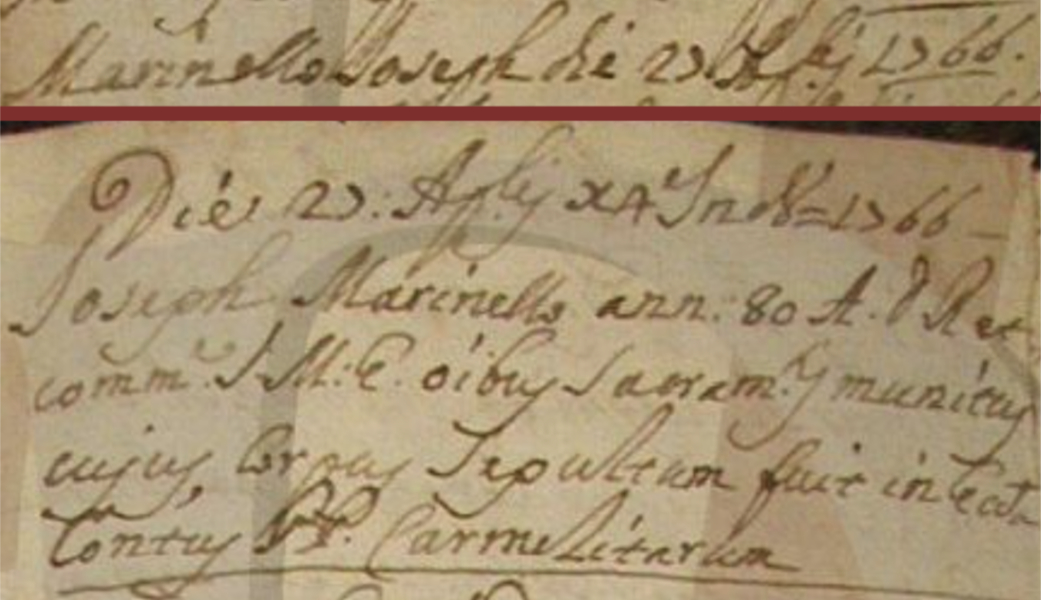 Marinello Joseph die 27 Aplis 1766.
Die 27: Aplis XA Ind. 1766
Joseph Marinello ann. 80 A. D. R. et
comm. S. M. E. oibus Sacram. munitus
cujus Corpus Sepultum fuit in Eccla
Contus PP. Carmelitarum